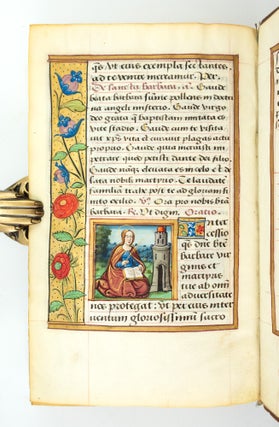 qs vt eius exempla sectantes
ad te venire mereamur. Per.
De sancta barbara. añ. Gaude
bata barbara sume pollens in doctri
na angeli misterio. Gaude virgo
deo grata q̄ baptistam imitata es
vite stadio. Gaude cum te visita
uit xp̄s vita et curauit plagas actu
proprio. Gaude quia meruisti im
petrare quod petisti dante dei filio.
Gaude nāq̄ eleuata es in celo et
lata nobili martyrio. Te laudātē
familiā trahe post te ad gloriam fi
nito exilio. V̄. Ora pro nobis bt̄ā
barbara. R. Vt digni. Oratio.
Inter
cessio
qs dn̄e btē
barbare vir
ginis et
martyris
tue ab om̄i
aduersitate
nos protegat: vt per eius inter
uentum gloriosissimū sacro